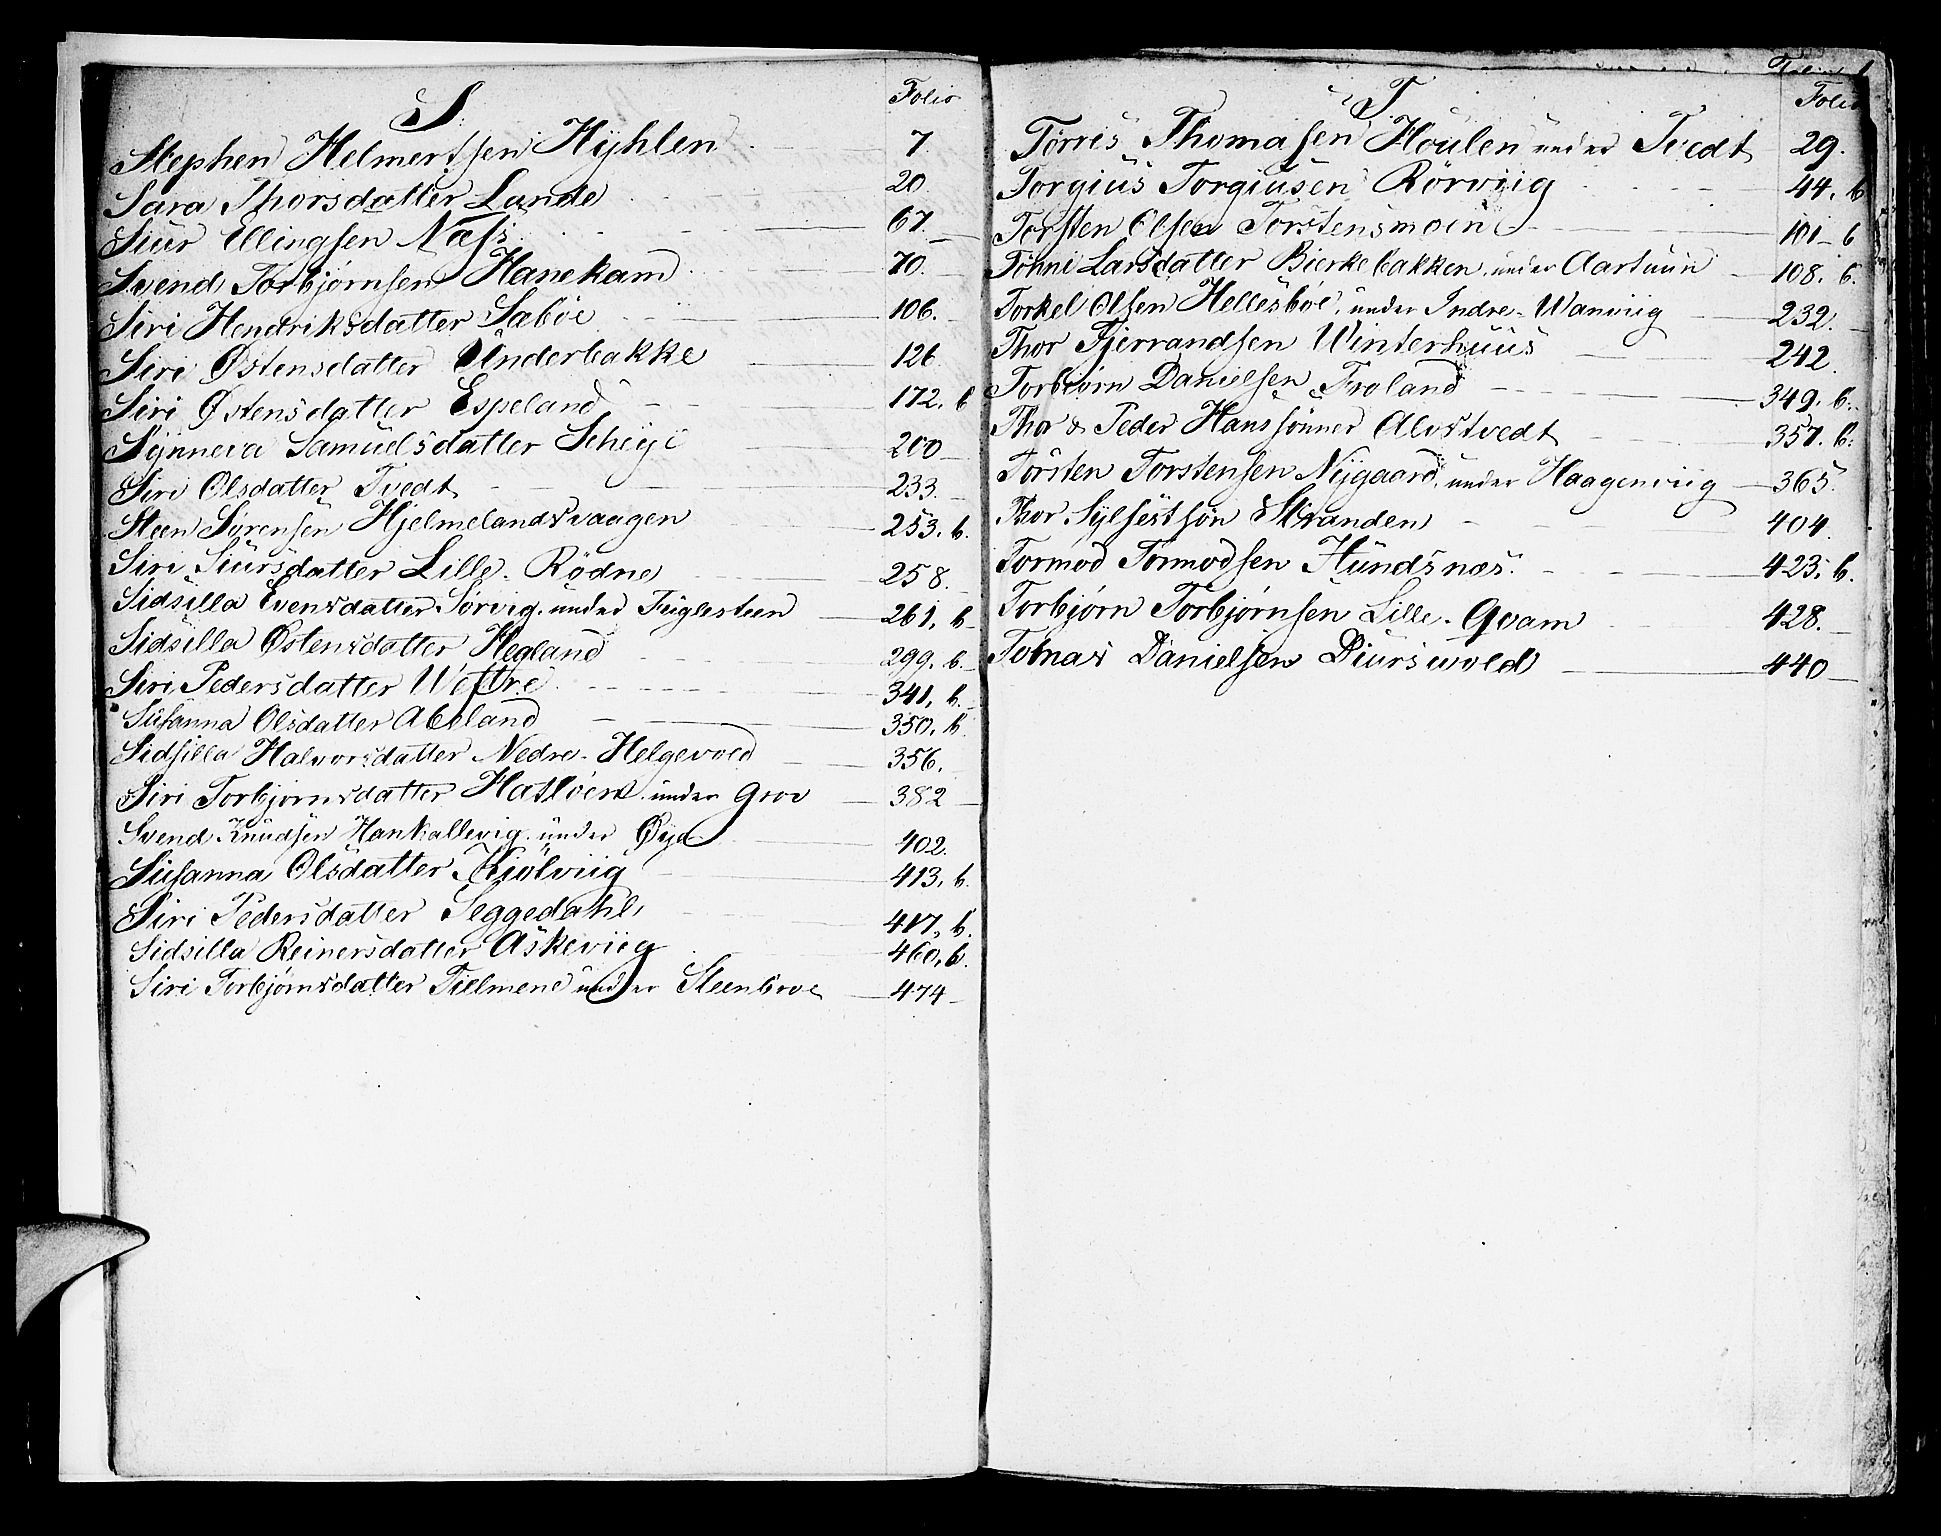 S. Folio
Stephen Helmertsen Hyhlen 7.
Sara Thorsdatter Lunde 20.
Siur Ellingsen Næss 67.
Svend Torbjørnsen Hanekam 70.
Siri Hendriksdatter Sabøe 106.
Siri Østensdatter Underbakke 126
Siri Østensdatter Espeland 172. b
Synneva Samuelsdatter Scheije 200
Siri Olsdatter Tvedt 233.
Steen Sørensen Hjelmelandsvaagen 253. b.
Siri Siursdatter Lille-Rödne 258.
Sidsilla Evensdatter Sørvig under Fuglesteen 261. b
Sidsilla Østensdatter Hegland 299. b.
Siri Pedersdatter Westre 341. b.
Susanna Olsdatter Abeland 350. b
Sidsilla Halvorsdatter Nedre-Helgevold 356.
Siri Torbjørnsdatter Hatløen under Groe 382
Svend Knudsen Hankallevig under Øye 402.
Susanna Olsdatter Kjölviig 413. b.
Siri Pedersdatter Seggedahl 417. b.
Sidsilla Reinersdatter Askeviig 460. b.
Siri Torbjørnsdatter Tielmene under Steenbroe 474
T Folio
Törris Thomasen Houlen under Tvedt 29.
Torgius Torgiusen Rörviig 44. b
Torsten Olsen Torstensmoen 101 b
Tohni Larsdatter Bierkebakken under Aartuun 108. b.
Torkel Olsen Hellesbøe, under Indre-Wanviig 232.
Thor Fjerrandsen Winterhuus 242.
Torbiørn Danielsen Froland 349. b.
Thor & Peder Hanssønner Alvstvedt 357. b.
Torsten Torstensen Nygaard under Haagenviig 365.
Thor Sylfestsön Stranden 404.
Tormod Tormodsen Hundsnæs 423. b.
Torbjørn Torbjørnsen Lille-Qvam 428.
Tobias Danielsen Diurswold 440